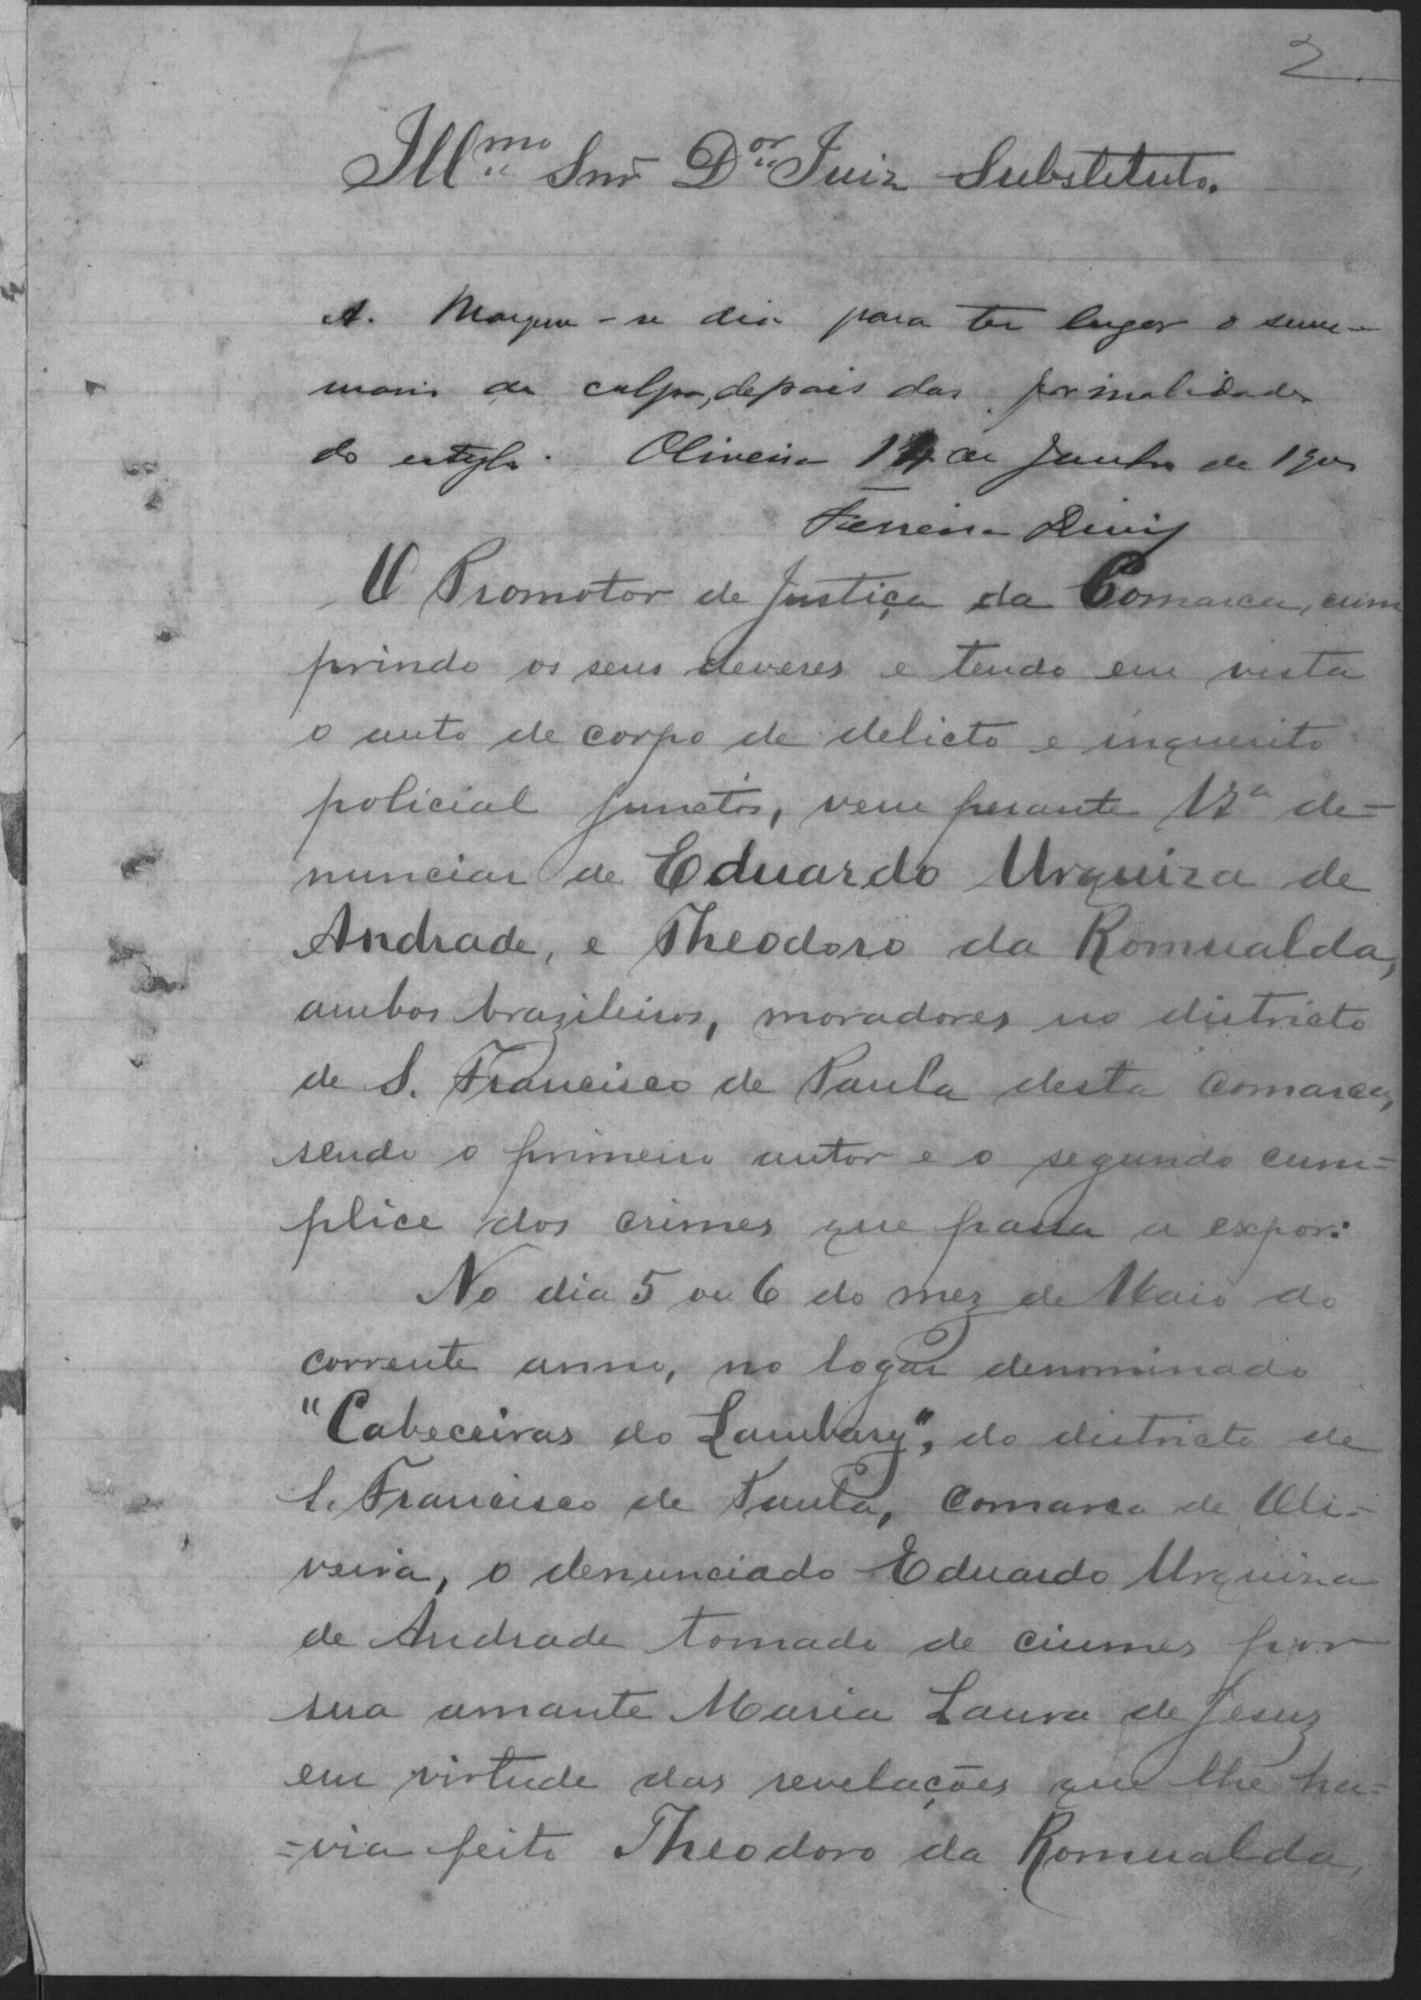 2
Illmo Snr Dor Juiz Substituto.
A. Marque-se dia para ter lugar o sum-
mario de culpa, depois das formalidades
do estylo. Oliveira 14 de Junho de
Ferreira Diniz
O Promotor de Justiça da Comarca, cum
prindo os seus deveres e tendo em vista
o auto de corpo de delicto e inquerito
policial junctos, vem perante Vª de-
nunciar de Eduardo Urquiza de
Andrade, e Theodoro da Romualda,
ambos brazileiros, moradores no districto
de S. Francisco de Paula desta comarca,
sendo o primeiro autor e o segundo cum=
plice dos crimes que passa a expor:
No dia 5 ou 6 do mez de Maio do
corrente anno, no logar denominado
"Cabeceiras do Lambary", do districto de
S. Francisco de Paula, comarca de Oli-
veira, o denunciado Eduardo Urquiza
de Andrade tomado de ciumes por
sua amante Maria Laura de Jesuz
em virtude das revelações que lhe ha=
=via feito Theodoro da Romualda,